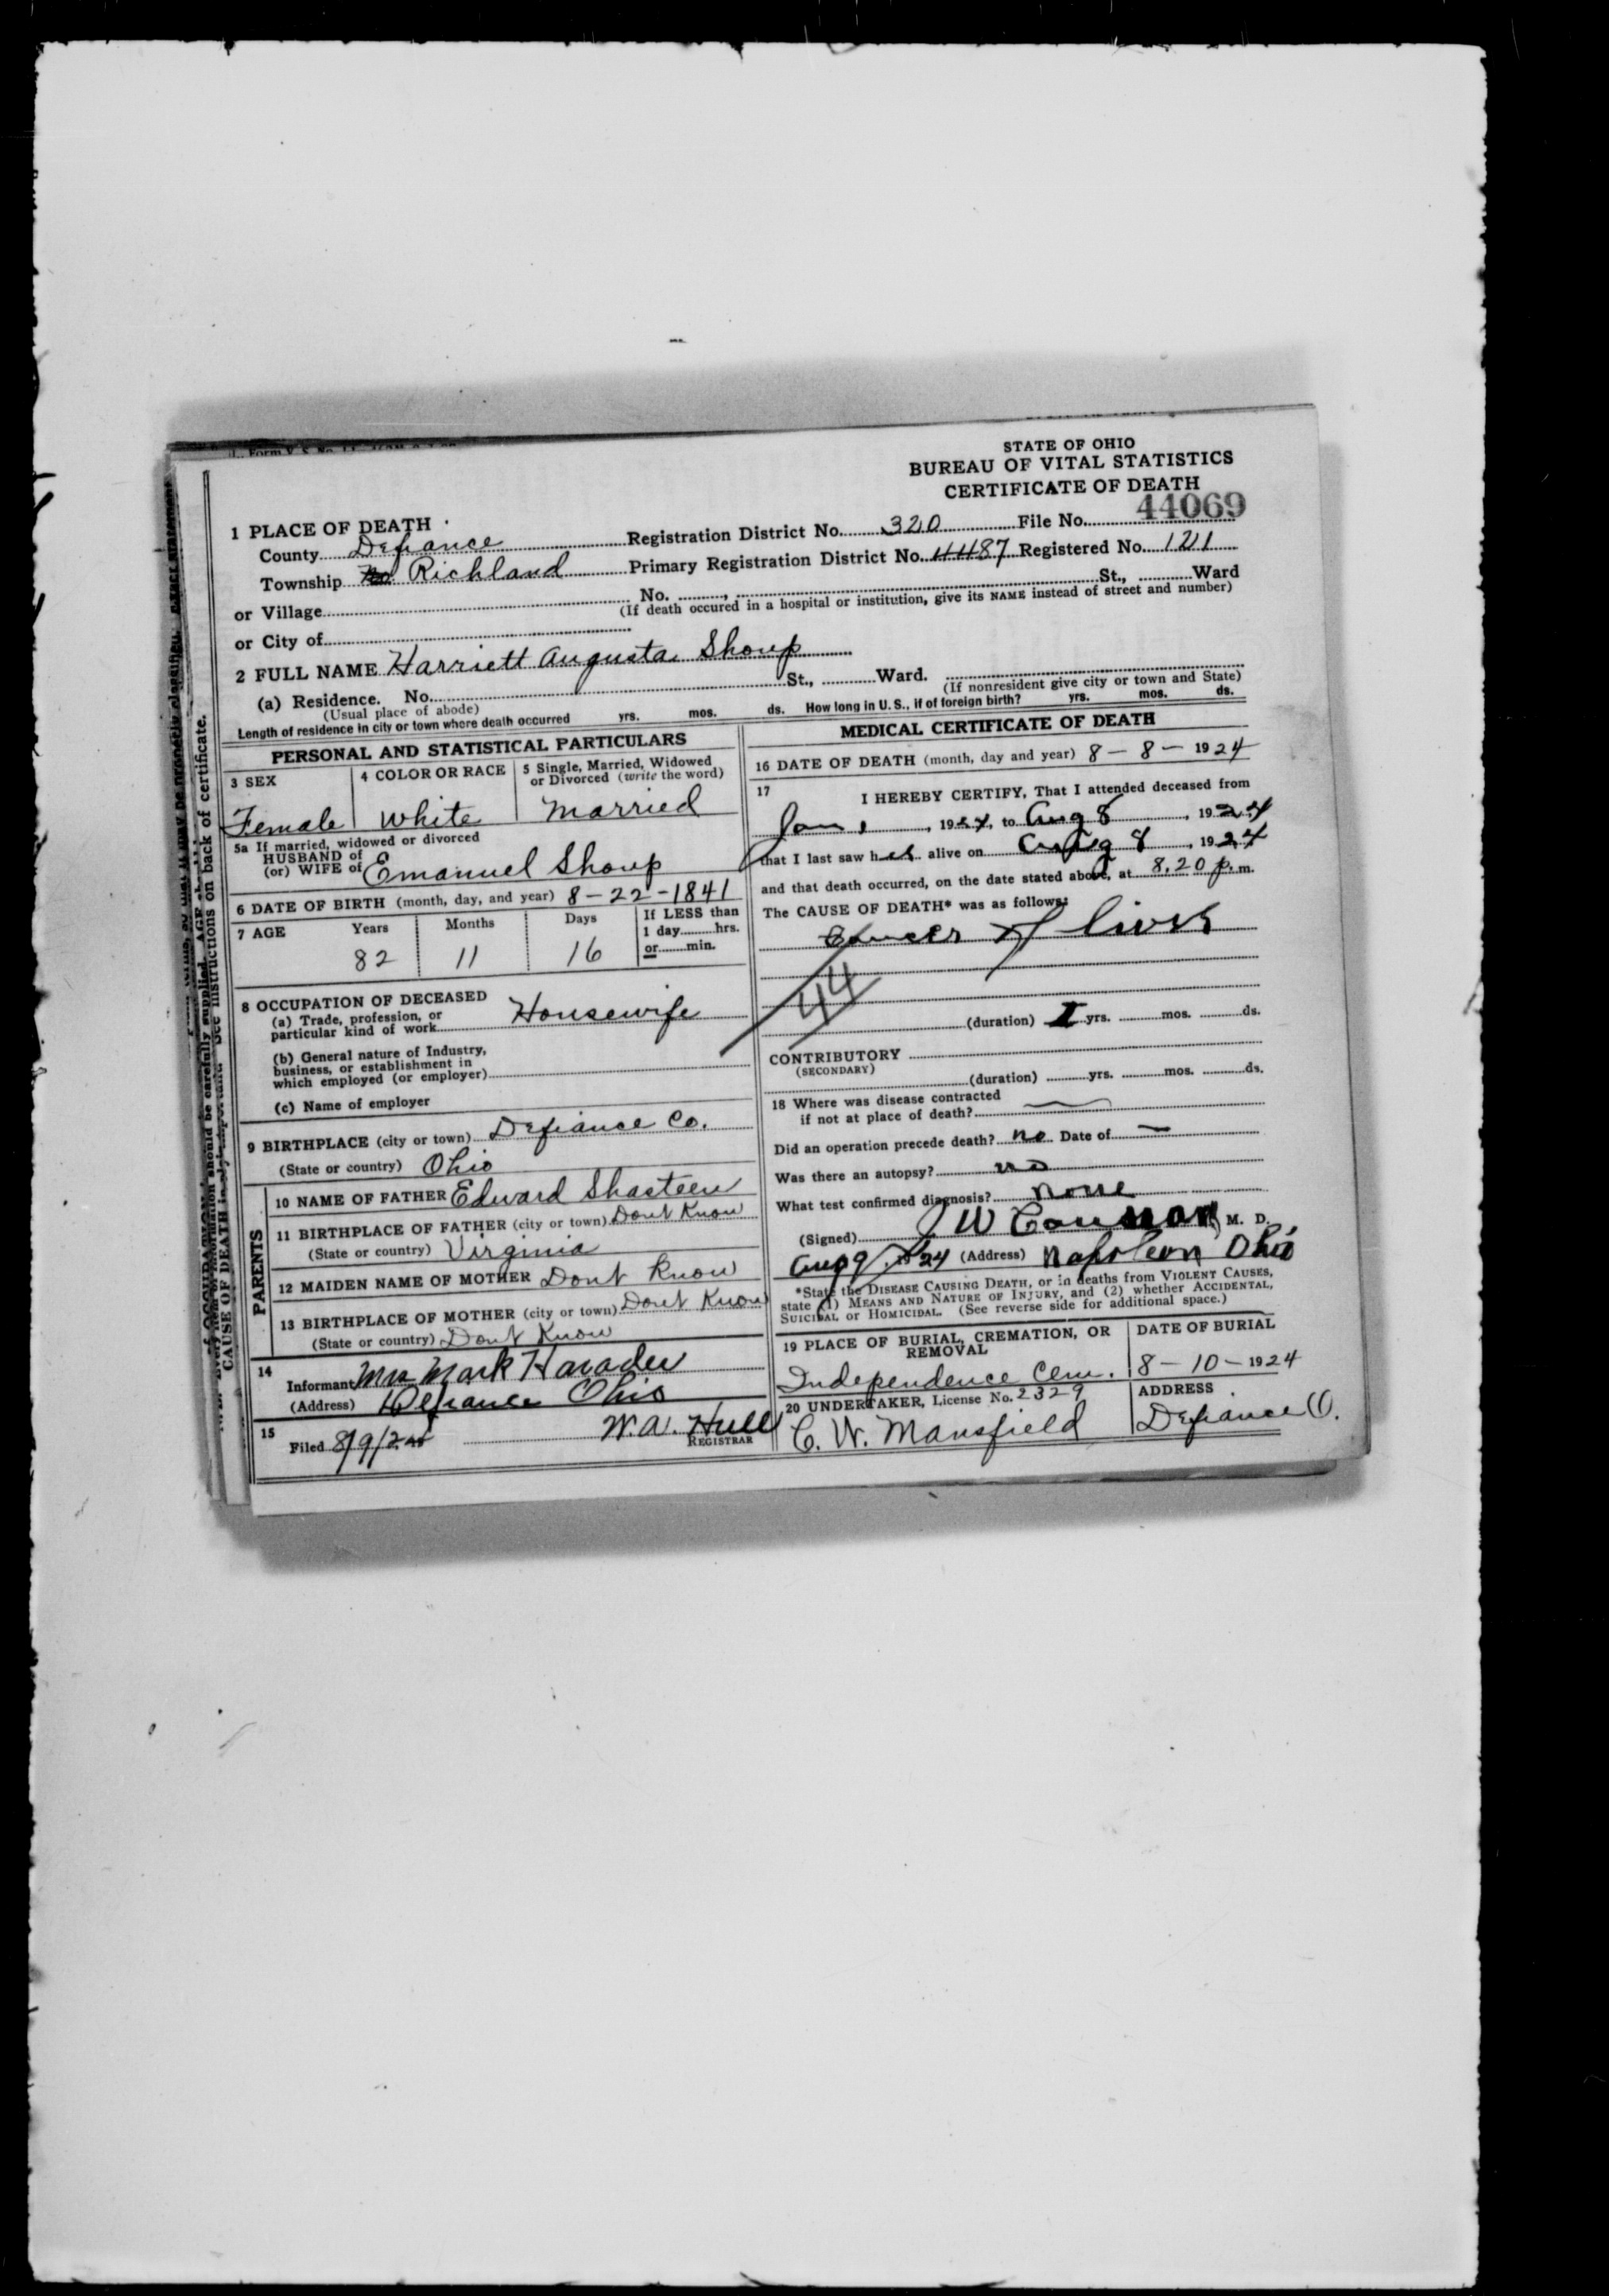 STATE OF OHIO
BUREAU OF VITAL STATISTICS
CERTIFICATE OF DEATH
44069
1 PLACE OF DEATH
County Defiance Registration District No. 320 File No.
Township Richland Primary Registration District No. 4487 Registered No. 121
or Village No. , St., Ward
(If death occured in a hospital or institution, give its NAME instead of street and number)
or City of
2 FULL NAME Harriett Augusta Shoup
(a) Residence. No. St., Ward.
(Usual place of abode) (If nonresident give city or town and State)
Length of residence in city or town where death occurred yrs. mos. ds. How long in U. S., if of foreign birth? yrs. mos. ds.
PERSONAL AND STATISTICAL PARTICULARS
3 SEX 4 COLOR OR RACE 5 Single, Married, Widowed
or Divorced (write the word)
Female White Married
5a If married, widowed or divorced
HUSBAND of
(or) WIFE of Emanuel Shoup
6 DATE OF BIRTH (month, day, and year) 8-22-1841
7 AGE Years Months Days If LESS than
1 day hrs.
82 11 16 or min.
8 OCCUPATION OF DECEASED
(a) Trade, profession, or
particular kind of work Housewife
(b) General nature of Industry,
business, or establishment in
which employed (or employer)
(c) Name of employer
9 BIRTHPLACE (city or town) Defiance Co.
(State or country) Ohio
PARENTS
10 NAME OF FATHER Edward Shasteen
11 BIRTHPLACE OF FATHER (city or town) Dont Know
(State or country) Virginia
12 MAIDEN NAME OF MOTHER Dont Know
13 BIRTHPLACE OF MOTHER (city or town) Dont Know
(State or country) Dont Know
14
Informant Mrs Mark Harader
(Address) Defiance Ohio
15
Filed 8/9/24 W. A. Hull
REGISTRAR
MEDICAL CERTIFICATE OF DEATH
16 DATE OF DEATH (month, day and year) 8-8-1924
17 I HEREBY CERTIFY, That I attended deceased from
Jan 1, 1924, to Aug 8, 1924
that I last saw her alive on Aug 8, 1924
and that death occurred, on the date stated above, at 8.20 p. m.
The CAUSE OF DEATH* was as follows:
Cancer of liver
44
(duration) 1 yrs. mos. ds.
CONTRIBUTORY
(SECONDARY)
(duration) yrs. mos. ds.
18 Where was disease contracted
if not at place of death?
Did an operation precede death? no Date of —
Was there an autopsy? no
What test confirmed diagnosis? None
(Signed) M. D.
Aug 9, 1924 (Address) Napoleon Ohio
*State the DISEASE CAUSING DEATH, or in deaths from VIOLENT CAUSES,
state (1) MEANS AND NATURE OF INJURY, and (2) whether ACCIDENTAL,
SUICIDAL or HOMICIDAL. (See reverse side for additional space.)
19 PLACE OF BURIAL, CREMATION, OR
REMOVAL DATE OF BURIAL
Independence Cem. 8-10-1924
20 UNDERTAKER, License No. 2329 ADDRESS
C. W. Mansfield Defiance O.
CAUSE OF DEATH
See instructions on back of certificate.